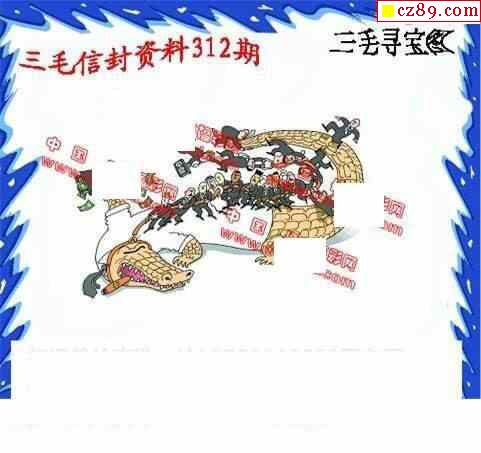 cz89.com
三毛信封资料312期
三毛寻宝图
中国
www
彩网
中国
www
彩网
.com
彩网
.com